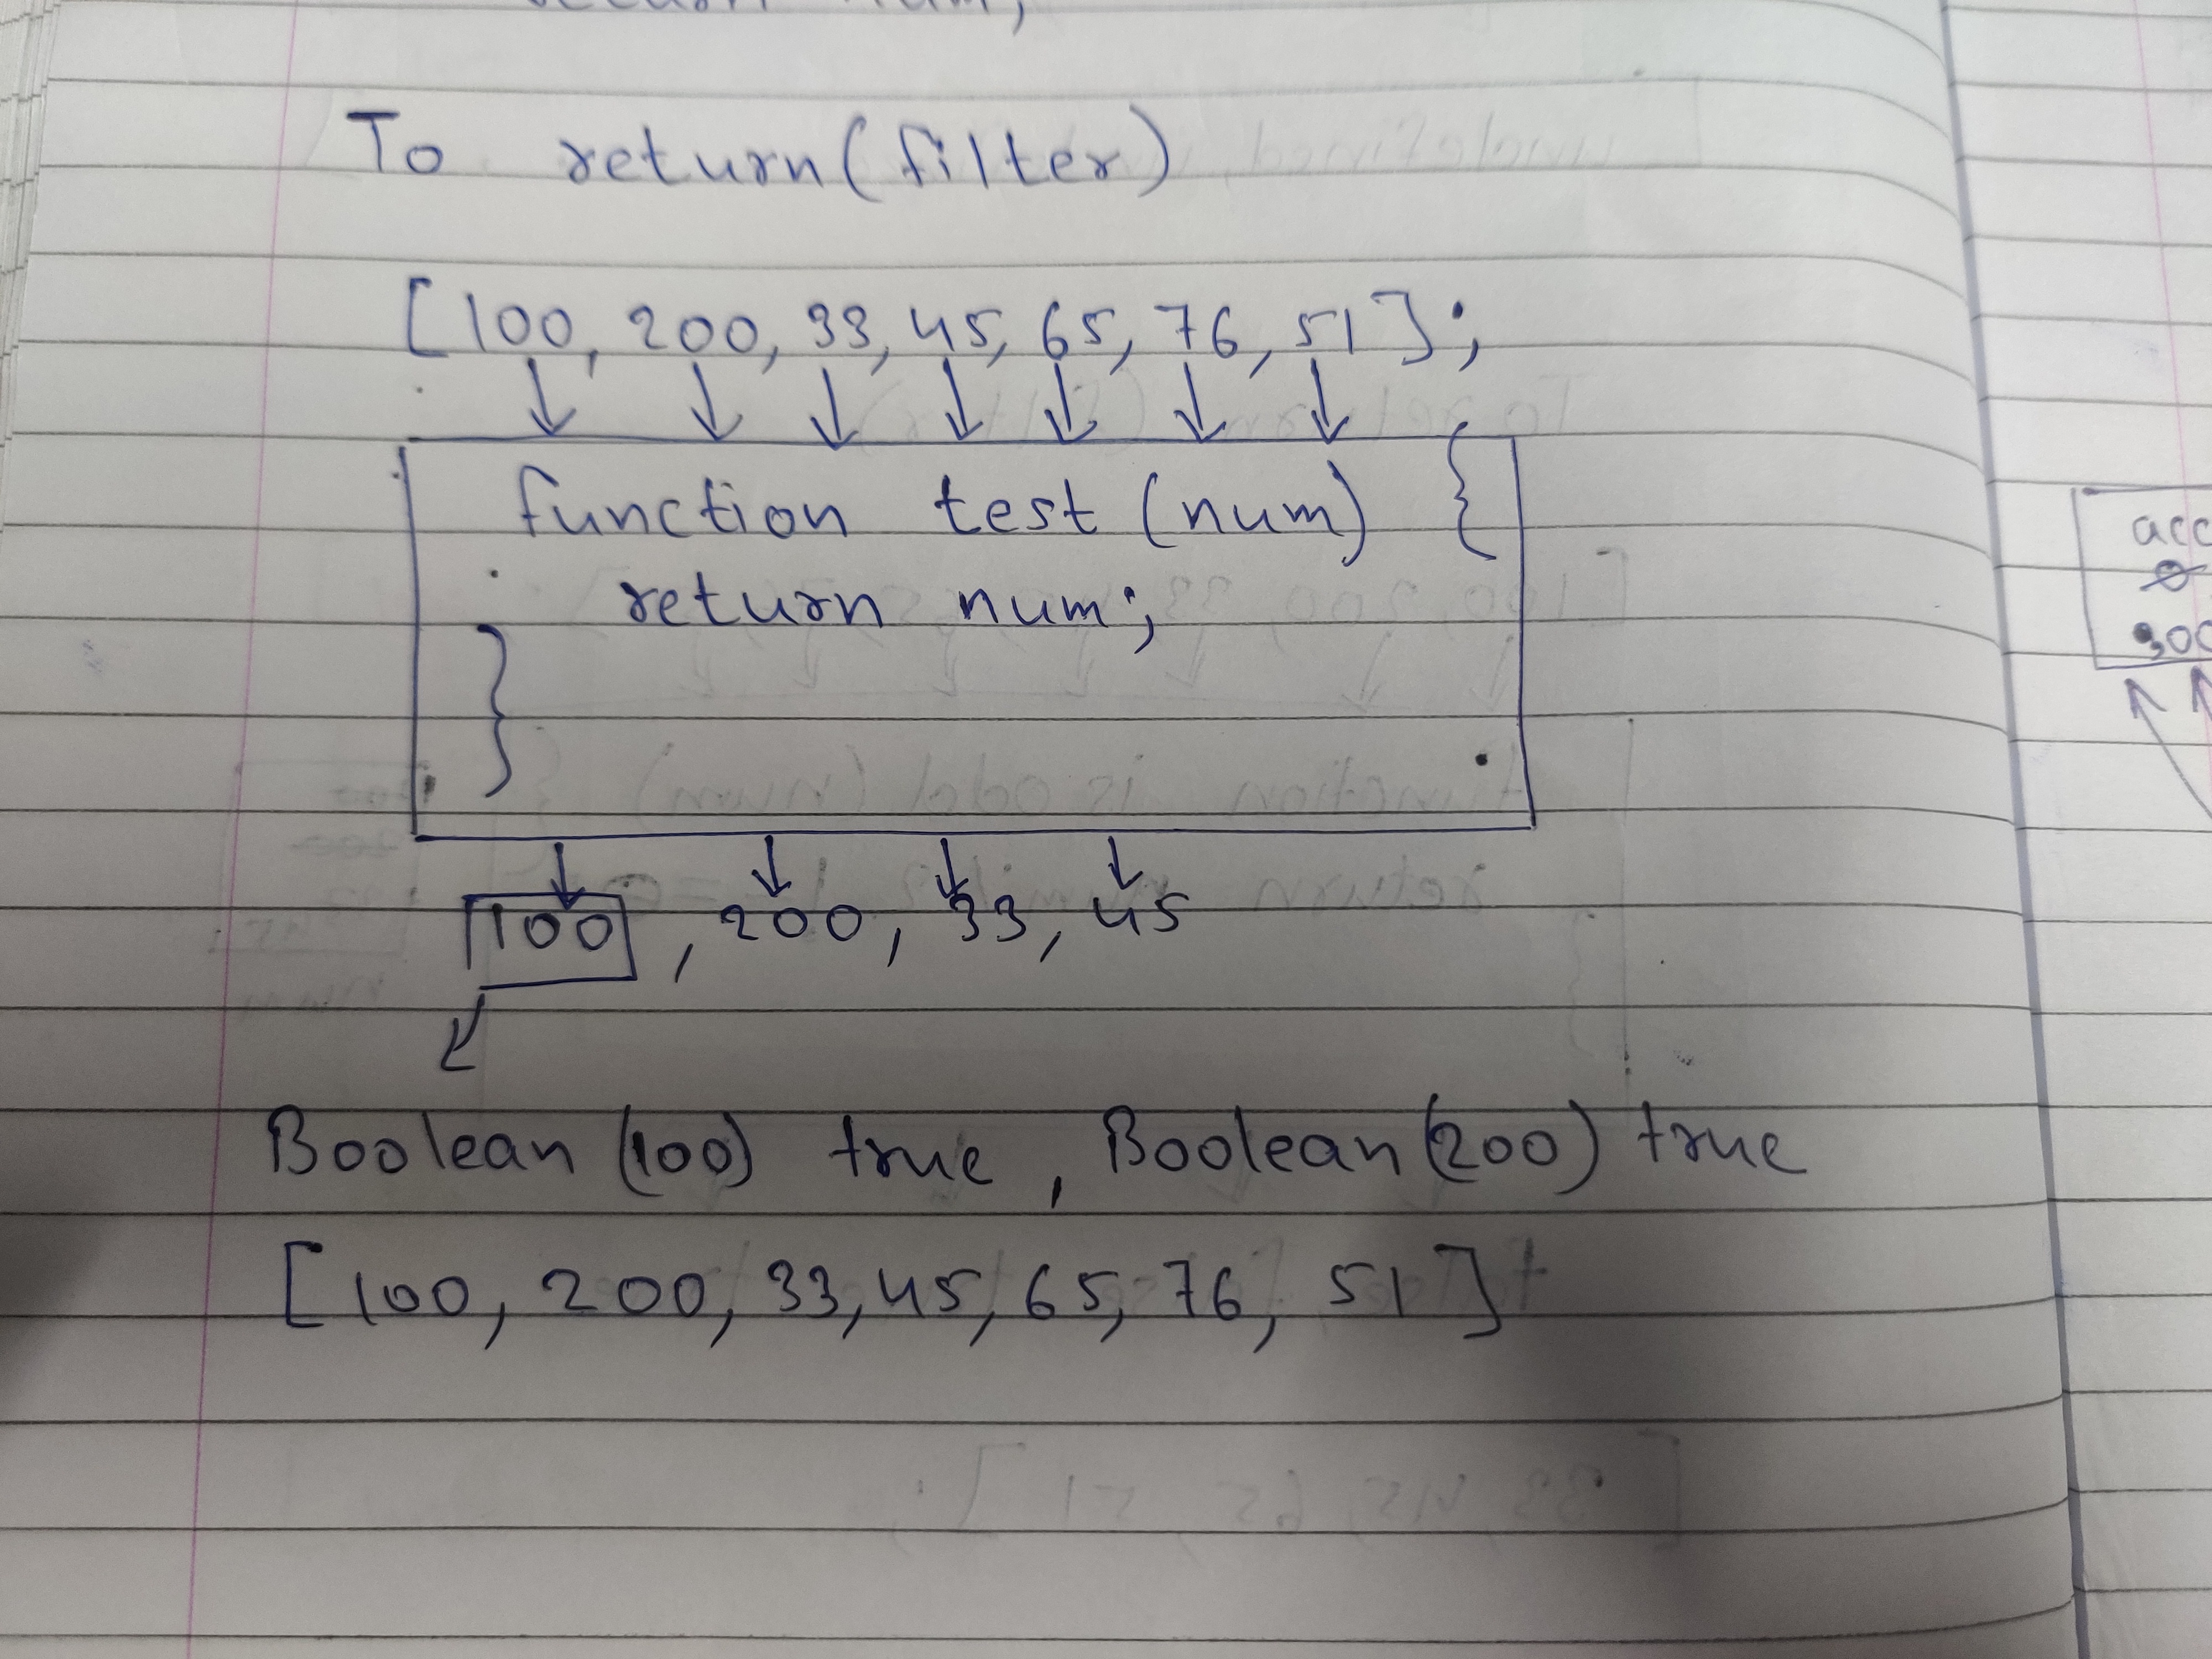 To return(filter)
[100, 200, 33, 45, 65, 76, 51];
function test (num) {
return num;
}
100, 200, 33, 45
Boolean (100) true, Boolean(200) true
[100, 200, 33, 45, 65, 76, 51]
acc
0